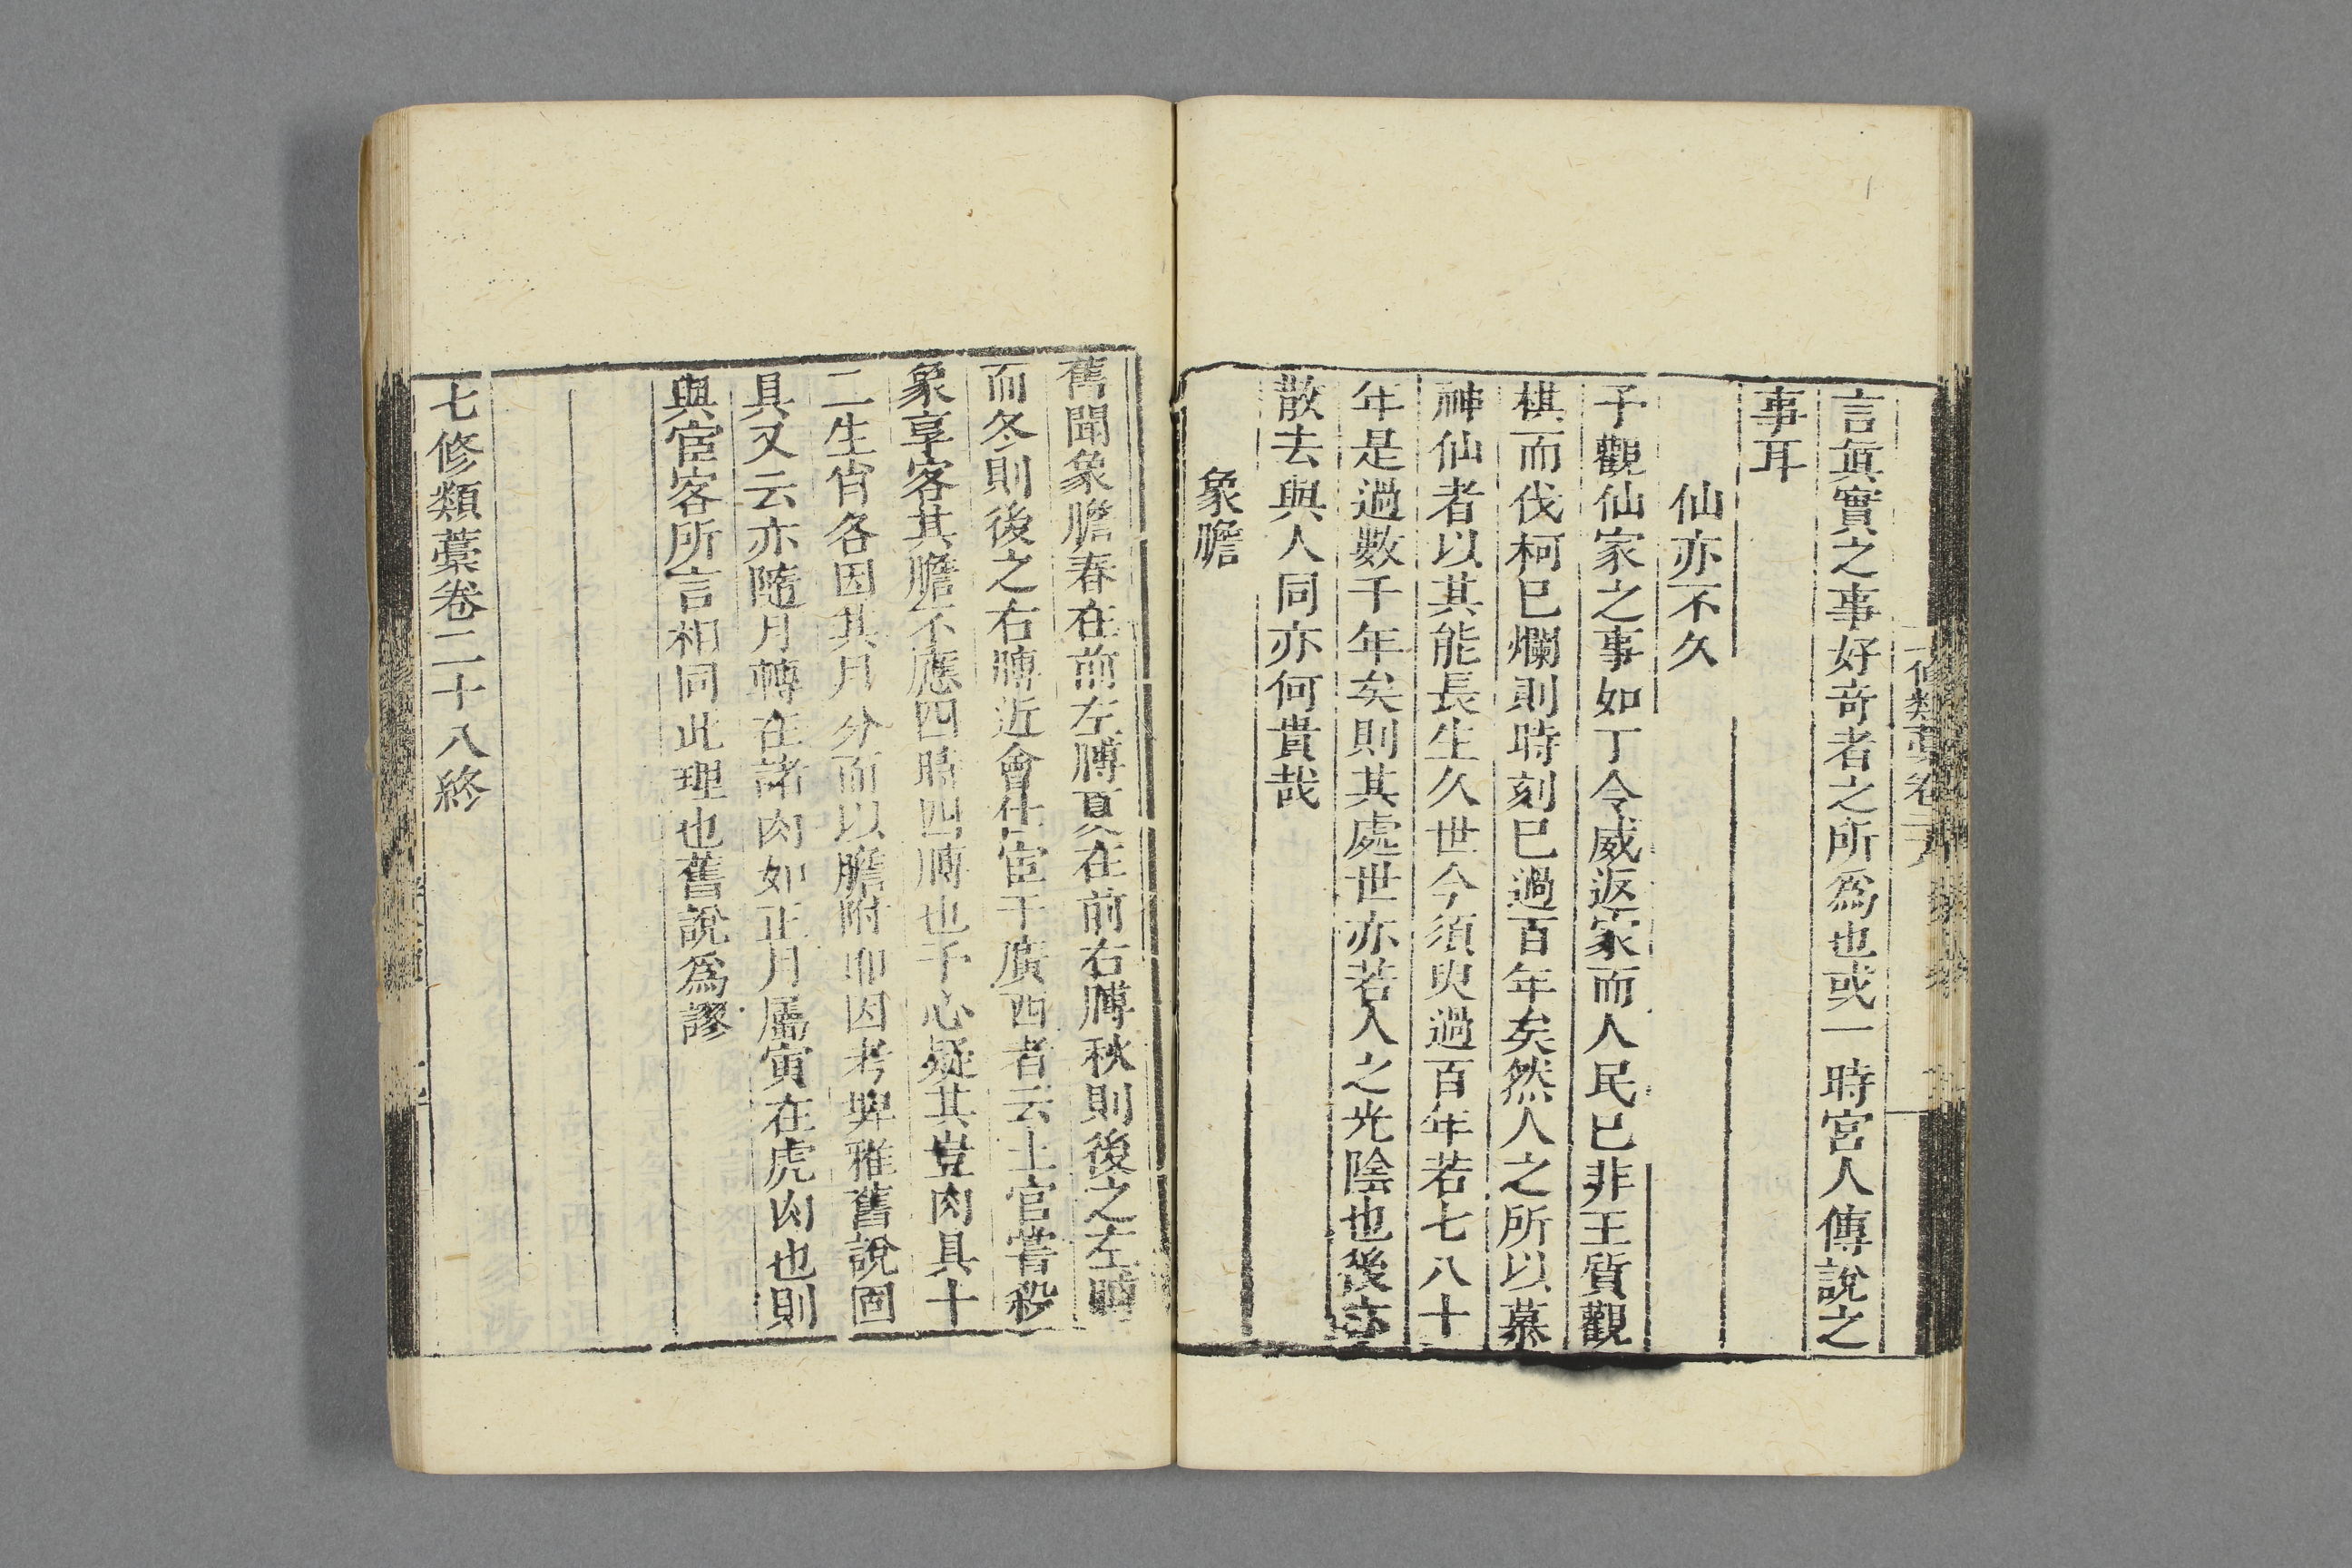 言眞實之事好奇者之所爲也或一時宮人傳說之
事耳
仙亦不久
予觀仙家之事如丁令威返家而人民已非王質觀
棋而伐柯已爛則時刻已過百年矣然人之所以慕
神仙者以其能長生久世今須臾過百年若七八十
年是過數千年矣則其處世亦若人之光陰也後亦
散去與人同亦何貴哉
象膽
舊聞象膽春在前左膊夏在前右膊秋則後之左膊
而冬則後之右膊近會仕宦于廣西者云土官嘗殺
象享客其膽不應四時四膊也予心疑其豈肉具十
二生肖各因其月分而以膽附卽因考埤雅舊說固
具又云亦隨月轉在諸肉如正月屬寅在虎肉也則
與宦客所言相同此理也舊說爲謬
七修類藁卷二十八終
修類藁卷